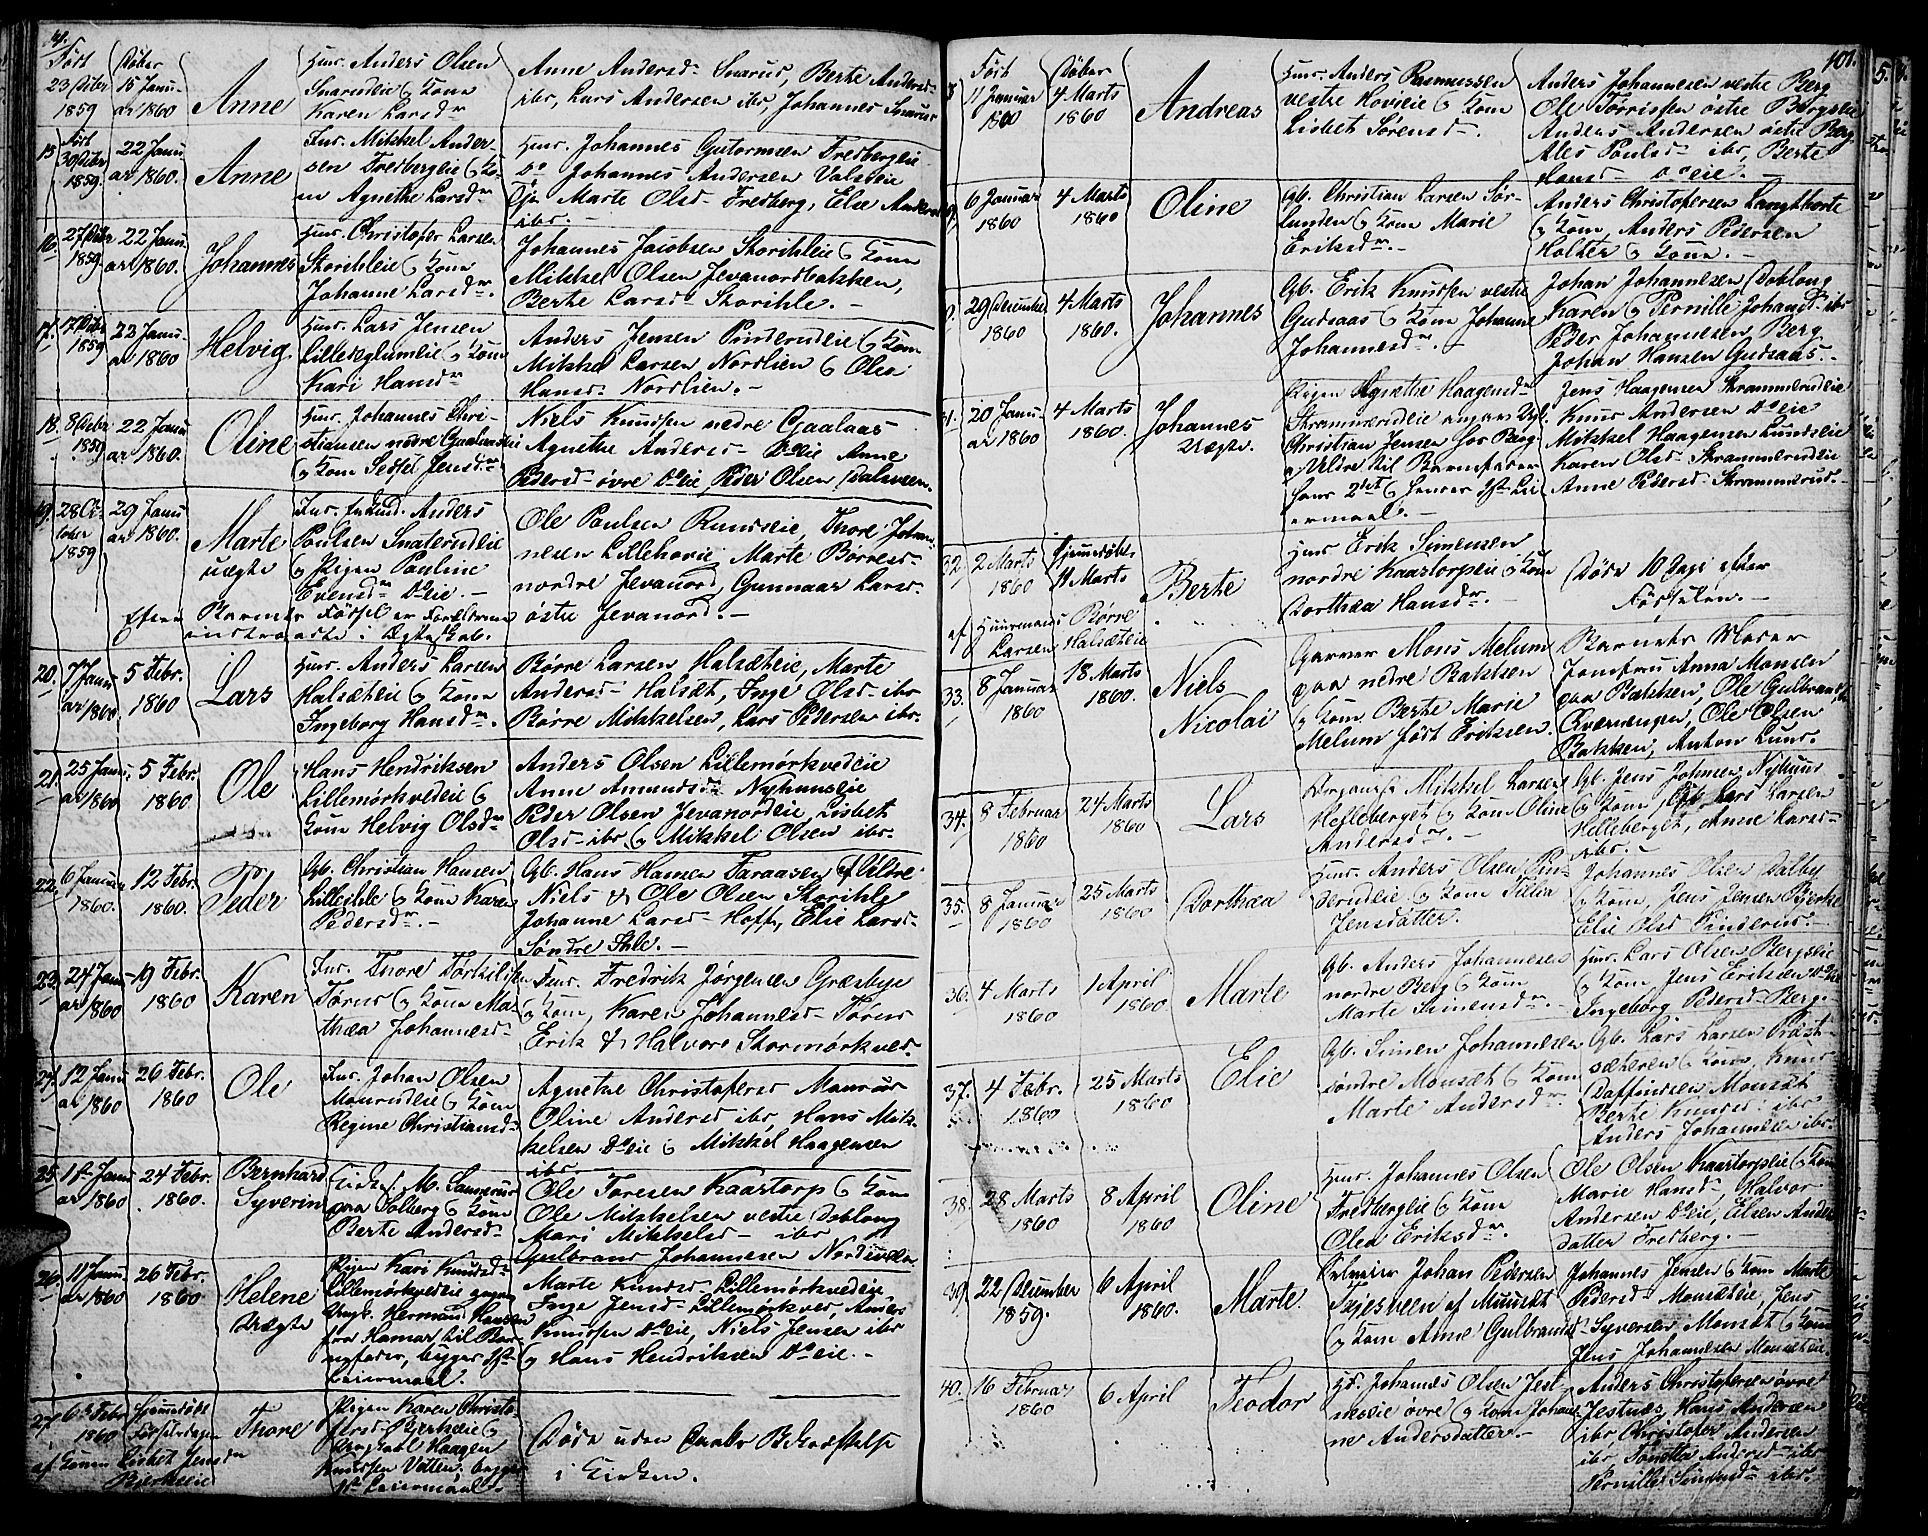 14.
Født 23 Dcbr 1859
Døbt 15 Janu-
ar 1860
Anne
Huus. Anders Olsen
Snarudeie og Kone
Karen Larsdr
Anne Andersd- Snarud, Berte Andersd-
ibr, Lars Andersen ibr, Johannes Snarud
15
Født
30 Dcbr
1859.
22 Janu-
ar 1860.
Anne
Inr. Mikkel Ander-
sen Fredbergeie og Ko-
ne Agnethe Larsdr
Huus. Johannes Gutormsen Fredbergeie
Do Johannes Andersen Valseie
Pige Marte Olsd- Fredberg, Else Andersd
ibr. -
16.
27 Dcbr
1859.
22 Janu-
ar 1860.
Johannes
Huus. Christofer Larsen
Storihleie og Kone
Johanne Larsdr.
Johannes Jacobsen Storihleie og Kone
Mikkel Olsen Jevanordbakken,
Berte Larsd- Storihle. -
17.
17 Dcbr
1859
22 Janu-
ar 1860
Helvig
Huus. Lars Jensen
og Kone
Kari Hansdr
Anders Jensen Pinderudeie og Kone
Mikkel Larsen Nordlien og Olea
Hansd- Nordlien. -
18.
8 Dcbr
1859
22 Janu-
ar 1860.
Oline
Huus. Johannes Chri-
stiansen nedre Gaalaaseie
og Kone Sidsel Jensdr
Niels Knudsen nedre Gaalaas
Agnethe Andersd- Doeie Anne
Pedersd- øvre Doeie, Peder Olsen Dalsveen.
19.
28 Oc-
tober
1859
29 Janu-
ar 1860.
Marte
uægte
Anders
Paulsen Snaterudeie
og Pigen Pauline
Evensdr Doeie. -
Ole Paulsen Rundseie, Thore Johan-
nesen Lillehovie, Marte Børresd-
nordre Jevanord, Gunnaar Larsd-
østre Jevanord. -
Efter Barnets Fødsel er Forældrene
indtraadte i Ægteskab.
20.
7 Janu-
ar 1860.
5 Febr.
1860
Lars
Huus. Anders Larsen
Halsæteie og Kone
Ingeborg Hansdr.
Børre Larsen Halsæteie, Marte
Andersd- Halsæt, Inge Olsd- ibr
Børre Mikkelsen, Lars Pedersen ibr.
21.
25 Janu-
ar 1860
5 Febr.
1860.
Ole
Hans Hendriksen
Lillemørkvedeie og
Kone Helvig Olsdr
Anders Olsen Lillemørkvedeie
Anne Amundsdr Nyhuuseie
Peder Olsen Jevanordeie, Lisbet
Olsd- ibr, og Mikkel Olsen ibr.
22.
6 Januar
1860.
12 Febr.
1860.
Peder
Gb. Christian Hansen
Lilleihle og Kone Karen
Pedersdr. -
Gb. Hans Hansen Taraasen af Veldre
Niels & Ole Olsen Storihle
Johanne Larsd- Hoff, Elie Larsd-
Søndre Ihle. -
23.
24 Janu-
ar 1860
19 Febr.
1860
Karen
Inr. Thore Torkilsen
Tørud og Kone Ma-
thea Johannesd-
Inr. Fredrik Jørgensen Græsbye
og Kone, Karen Johannesd- Tørud
Erik & Halvore Stormørkved.
24.
12 Janu-
ar 1860
26 Febr.
1860
Ole
Inr. Johan Olsen
Maurudeie og Kone
Regine Christiansdr
Agnethe Christofersd Maurud
Oline Andersd ibr, Hans Mik-
kelsen Doeie og Mikkel Haagensen
ibr.
25.
1ste Janu-
ar 1860
24 Febr.
1860.
Bernhard
Syverin
M.
paa Solberg og Kone
Berte Andersd-
Ole Toresen Kaastorp og Kone
Ole Mikkelsen vestre Deblong
Mari Mikkelsd- ibr
Gulbrand Johannesen Nordsveen
26.
11 Janu-
ar 1860
26 Febr.
1860
Helene
Uægte
Pigen Kari Knudsd-
Lillemørkvedeie angav
Ungk. Herman Hansen
fra Hamar til Bar-
nefader, begges 1ste
Leiermaal.
Marte Knudsd- Lillemørkvedeie,
Inge Jensd- Lillemørkved, Anders
Knudsen Doeie, Niels Jensen ibr
og Hans Hendriksen Doeie. -
27.
6te Febr
1860
Hjemmedøbt
Fødselsdagen
af Konen Lisbet Jensdr
Bjerkeeie
Thore
Pigen Karen Christo-
fersd- Bjerkeeie og
Ungkarl Haagen
Knudsen Vetten, begges
1ste Leiermaal.
Døde uden Daabs Bekræftelse
i Kirken.
101.
Født
11 Januar
1860
Døbt
4 Marts
1860
Andreas
Huus. Anders Rasmussen
vestre Hovieie og Kone
Lisbet Sørensd-.
Anders Johannesen vestre Berg
Ole Torrissen østre Bergseie
Anders Andersen østre Berg
Ales Paulsd- ibr, Berte
Hansd- Doeie. -
6 Januar
1860
4 Marts
1860
Oline
Gb. Christian Larsen Sør-
lunden og Kone Marie
Eriksdr. -
Anders Christofersen Langthorte
og Kone, Anders Pedersen
Holter og Kone. -
29 December
1860
4 Marts
1860.
Johannes
Gb. Erik Knudsen vestre
Gudsaas og Kone Johanne
Johannesdr. -
Johan Johannesen Deblong
Karen og Pernille Johansdr ibr
Peder Johannesen Berg
Johan Hansen Gudsaas. -
31.
20 Janu-
ar 1860
4 Marts
1860.
Johannes
Uægte.
Pigen Agnethe Haagensdr
Skrammerudeie angav Ungk.
Christian Jensen
Veldre til Barnefader
hans 2det og hendes 1ste Lei-
ermaal. -
Jens Haagensen Skrammerudeie
Knud Andersen Doeie
Mikkel Haagensen Lundseie
Karen Olsd- Skrammerudeie
Anne Pedersd- Skrammerud.
32.
2 Marts
1860
Hjemmedøbt
11 Marts
af Huusmand Børre
Larsen Halsæteie
Berte
Huus Erik Simensen
nordre Kaastorpeie og Kone
Dorthea Hansdr. -
Døde 10 Dage efter
Fødselen. -
33.
8 Januar
1860
18 Marts
1860.
Niels
Nicolai
Garver Mons Melum
paa nedre Bakken
og Kone Berte Marie
Melum født Eriksen.
Barnets Moder
Jomfru Anna Monsen
paa Bakken, Ole Gulbrandsen
Qværnengen, Ole Olsen
Bakken, Anton Lund.
34.
8 Februar
1860
24 Marts
1860
Lars
Mikkel Larsen
Helleberget og Kone Oline
Andersdr. -
Gb. Jens Johnsen Nyhuus
og Kone, Gb. Lars Larsen
Helleberget, Anne Larsd-
ibr. -
35.
8 Januar
1860
25 Marts
1860
Dorthea
Huus. Anders Olsen Pin-
derudeie og Kone
Jensdatter.
Johannes Olsen Dælby
og Kone, Jens Jensen Bjerke
Elie Olsd Pinderud.
36.
4 Marts
1860
1 April
1860.
Marte
Gb. Anders Johannesen
nordre Berg og Kone
Marte Simensdr. -
Huus. Lars Olsen Bergseie
og Kone, Jens Eriksen
Ingeborg Pedersd- Berg. -
37.
4 Febr.
1860
25 Marts
1860
Elie
Gb. Simen Johannesen
søndre Monsæt og Kone
Marte Andersdr.
Gb. Lars Larsen Præst-
sæteren og Kone, Knud
Daffinsen Monsæt
Berte Knudsd- ibr
Anders Johannesen ibr.
38.
28 Marts
1860
8 April
1860
Oline
Huus. Johannes Olsen
Fredbergeie og Kone
Olea Eriksdr.
Ole Olsen Kaastorpeie og Kone
Marie Hansd-, Halvor
Andersen Doeie, Elsea Anders-
datter Fredberg. -
39.
22 December
1859.
6 April
1860.
Marte.
Johan Pedersen
Tejesveen af Monsæt
og Kone Anne Gulbrandsd-
Johannes Jensen og Kone Marte
Pedersd- Monsæteie, Jens
Syversen Monsæt og Kone
Jens Johannesen Monsæteie
40.
16 Februar
1860
6 April
Teodor
Hd. Johannes Olsen Jest-
neseie øvre og Kone Johan-
ne Andersdatter. -
Anders Christofersen øvre
Jestnes, Hans Andersen
ibr Christofer Andersen
ibr, Tonette Andersd- ibr
Pernille Simensdr ibr.